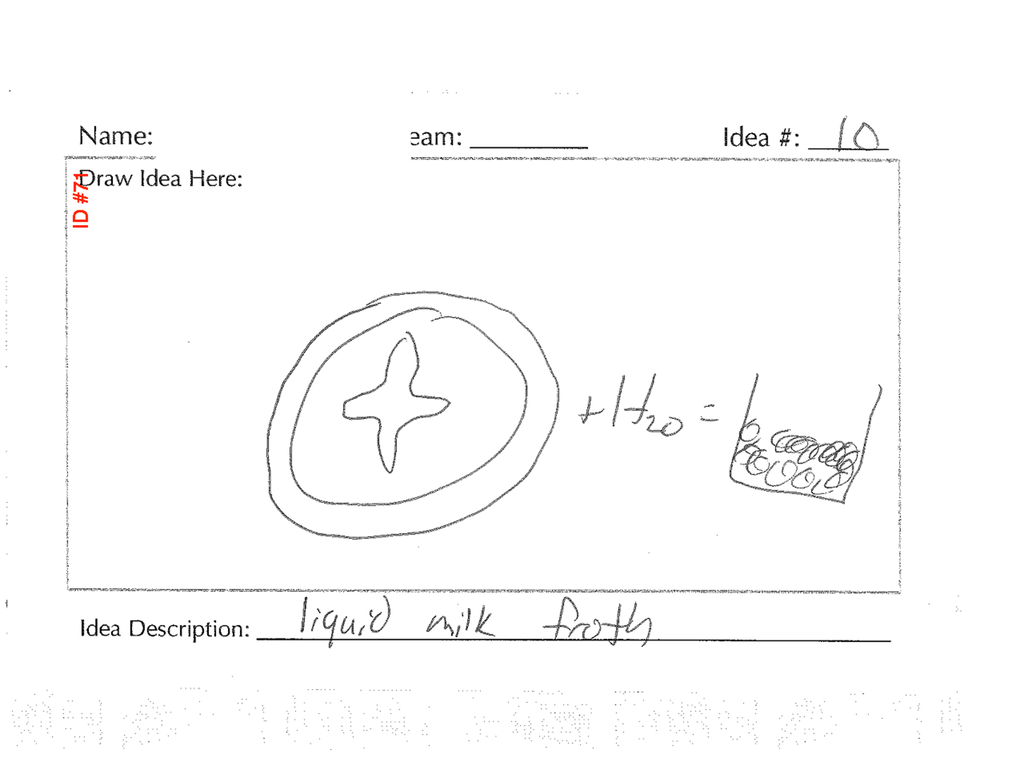 Name: eam: Idea #: 10
ID #71
Draw Idea Here:
+ H20 =
Idea Description: liquid milk froth